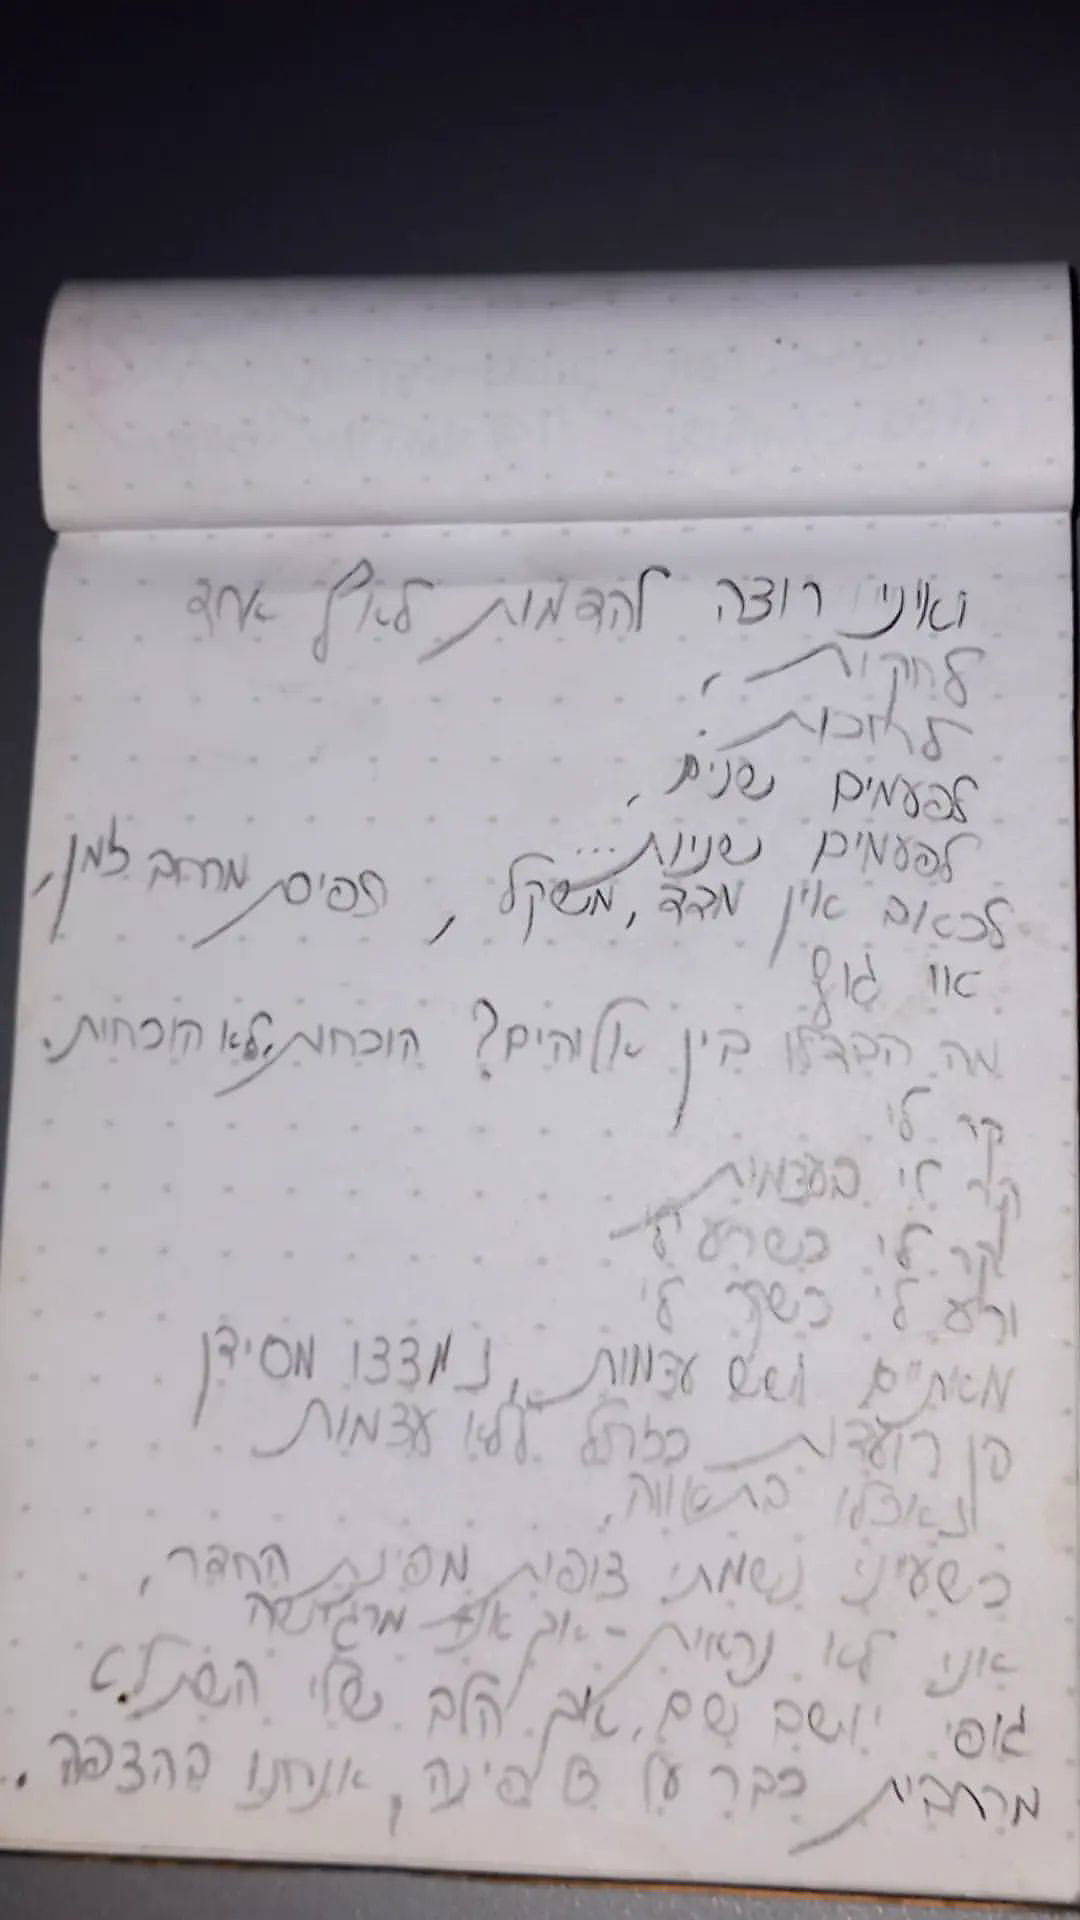 ואיני רוצה להדמות לאף אחד
לחקות,
לחכות.
לפעמים שנים,
לפעמים שניות...
לכאוב אין מדד, משקל, תפיסת מרחב זמן,
או גוף
מה הבדלו בין אלוהים? הוכחות, לא הוכחות.
קר לי
קר לי בעצמות
קר לי כשרע לי
ורע לי כשקר לי
מאתיים ושש עצמות, נמצצו מסידן
הן רועדות ללא עצמות
בתאווה.
כשעיני נשמתי צופות מפינת החדר,
אני לא נראית - אך אני מרגישה
גופי יושב שם, אך הלב שלי
כבר על פינה, אנחנו בהצפה.